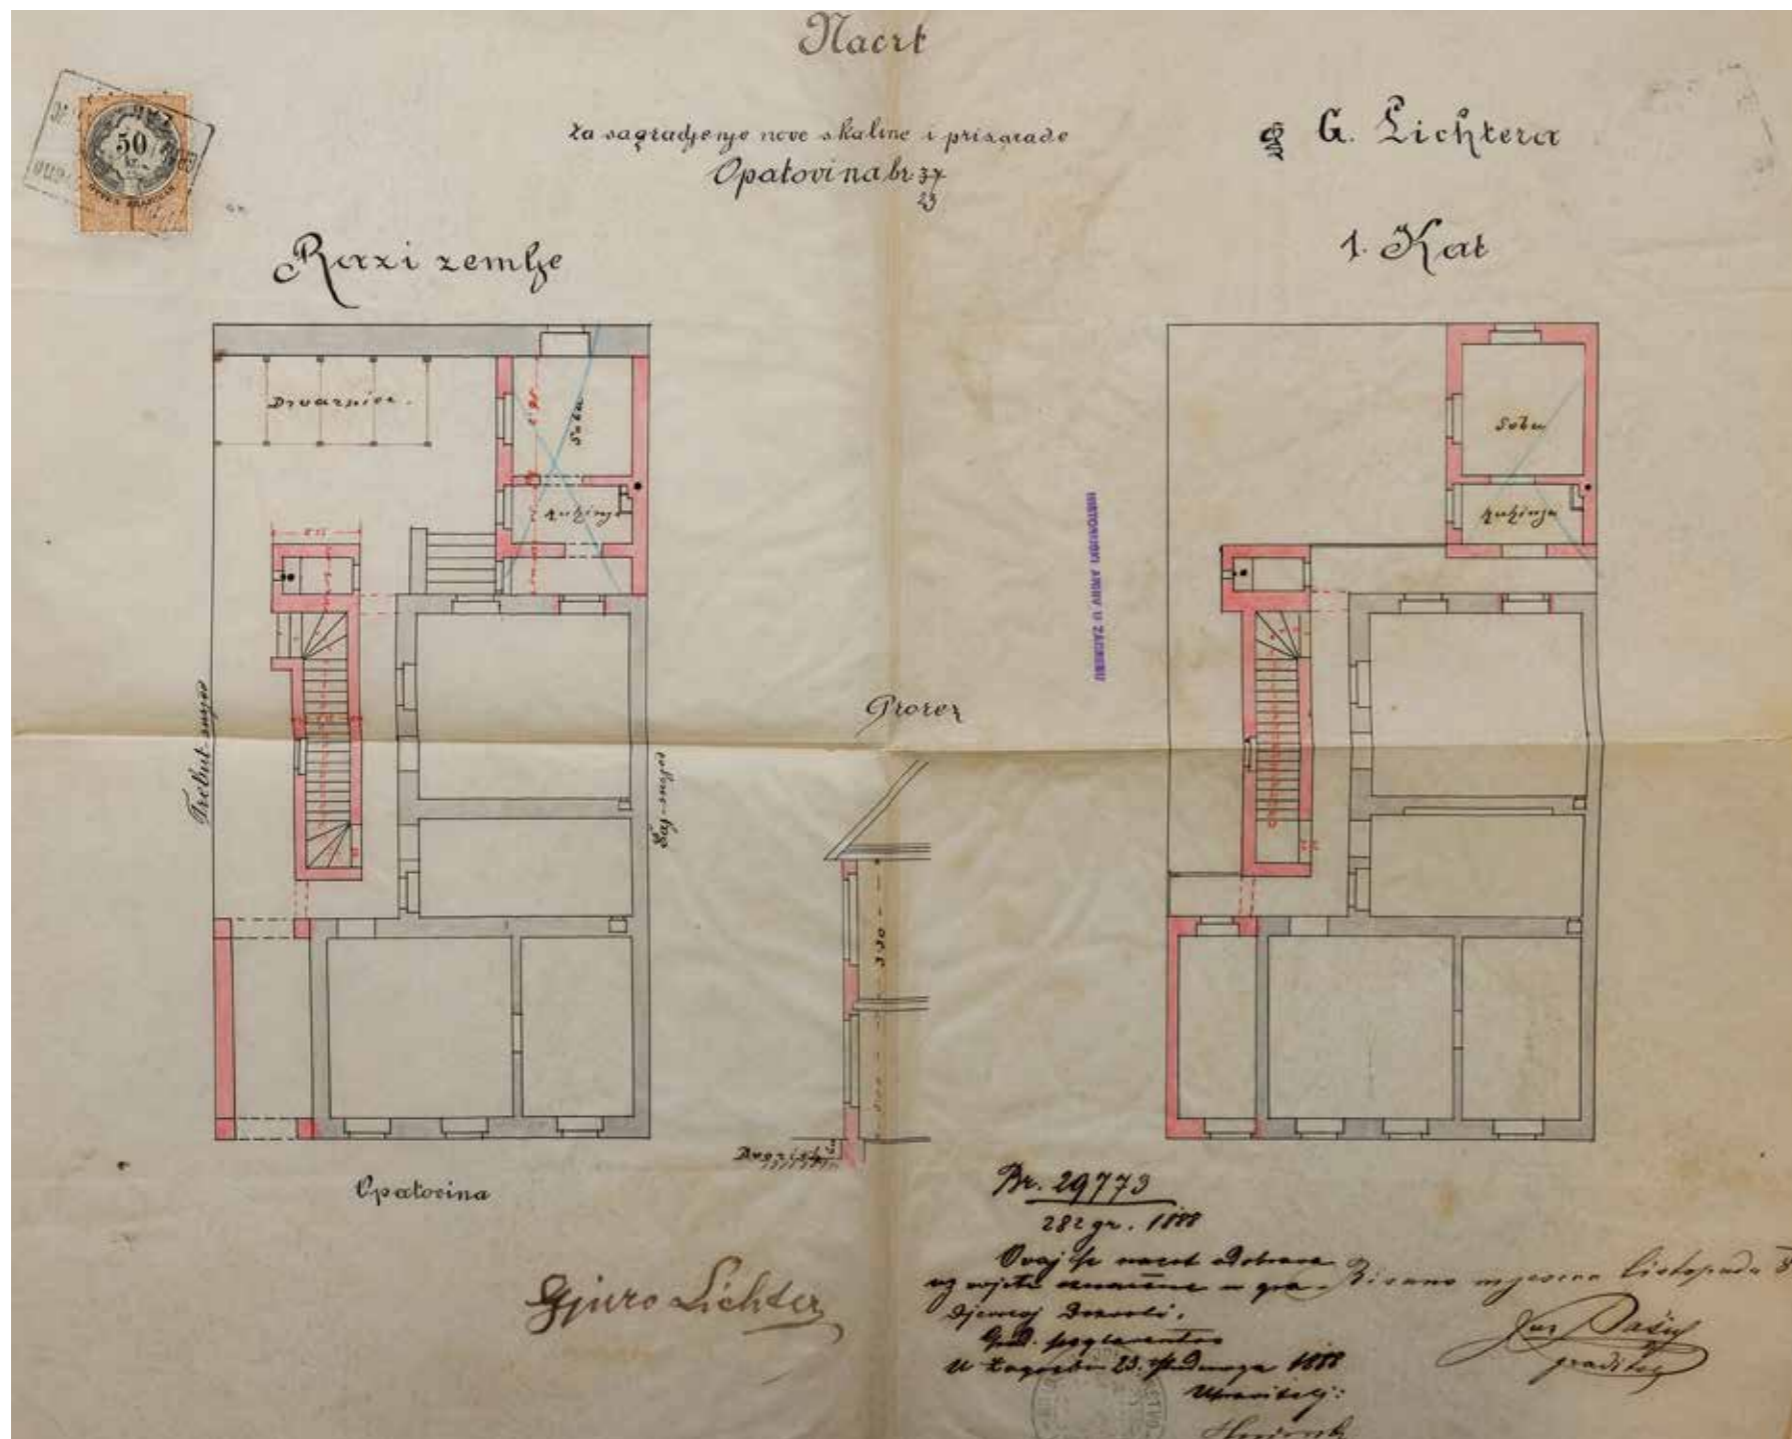 Nacrt
za sagradjenje nove skaline i prisgrade
Opatovina br. 37
23
G. Lichtera
50
Razi zemlje
1. Kat
Drvarnice.
Soba
Kuhinja
Soba
Kuhinja
HISTORIJSKI ARHIV U ZAGREBU
Prorez
3·30
Dvorište
Opatovina
Gjuro Lichter
Br. 29773
282 gr. 1888
Ovaj se nacrt odobrava
uz uvjete označene u gra-
djevnoj dozvoli.
Grad. poglavarstvo
U Zagrebu 23. studenoga 1888
Upravitelj:
Bisano mjeseca listopada
graditelj